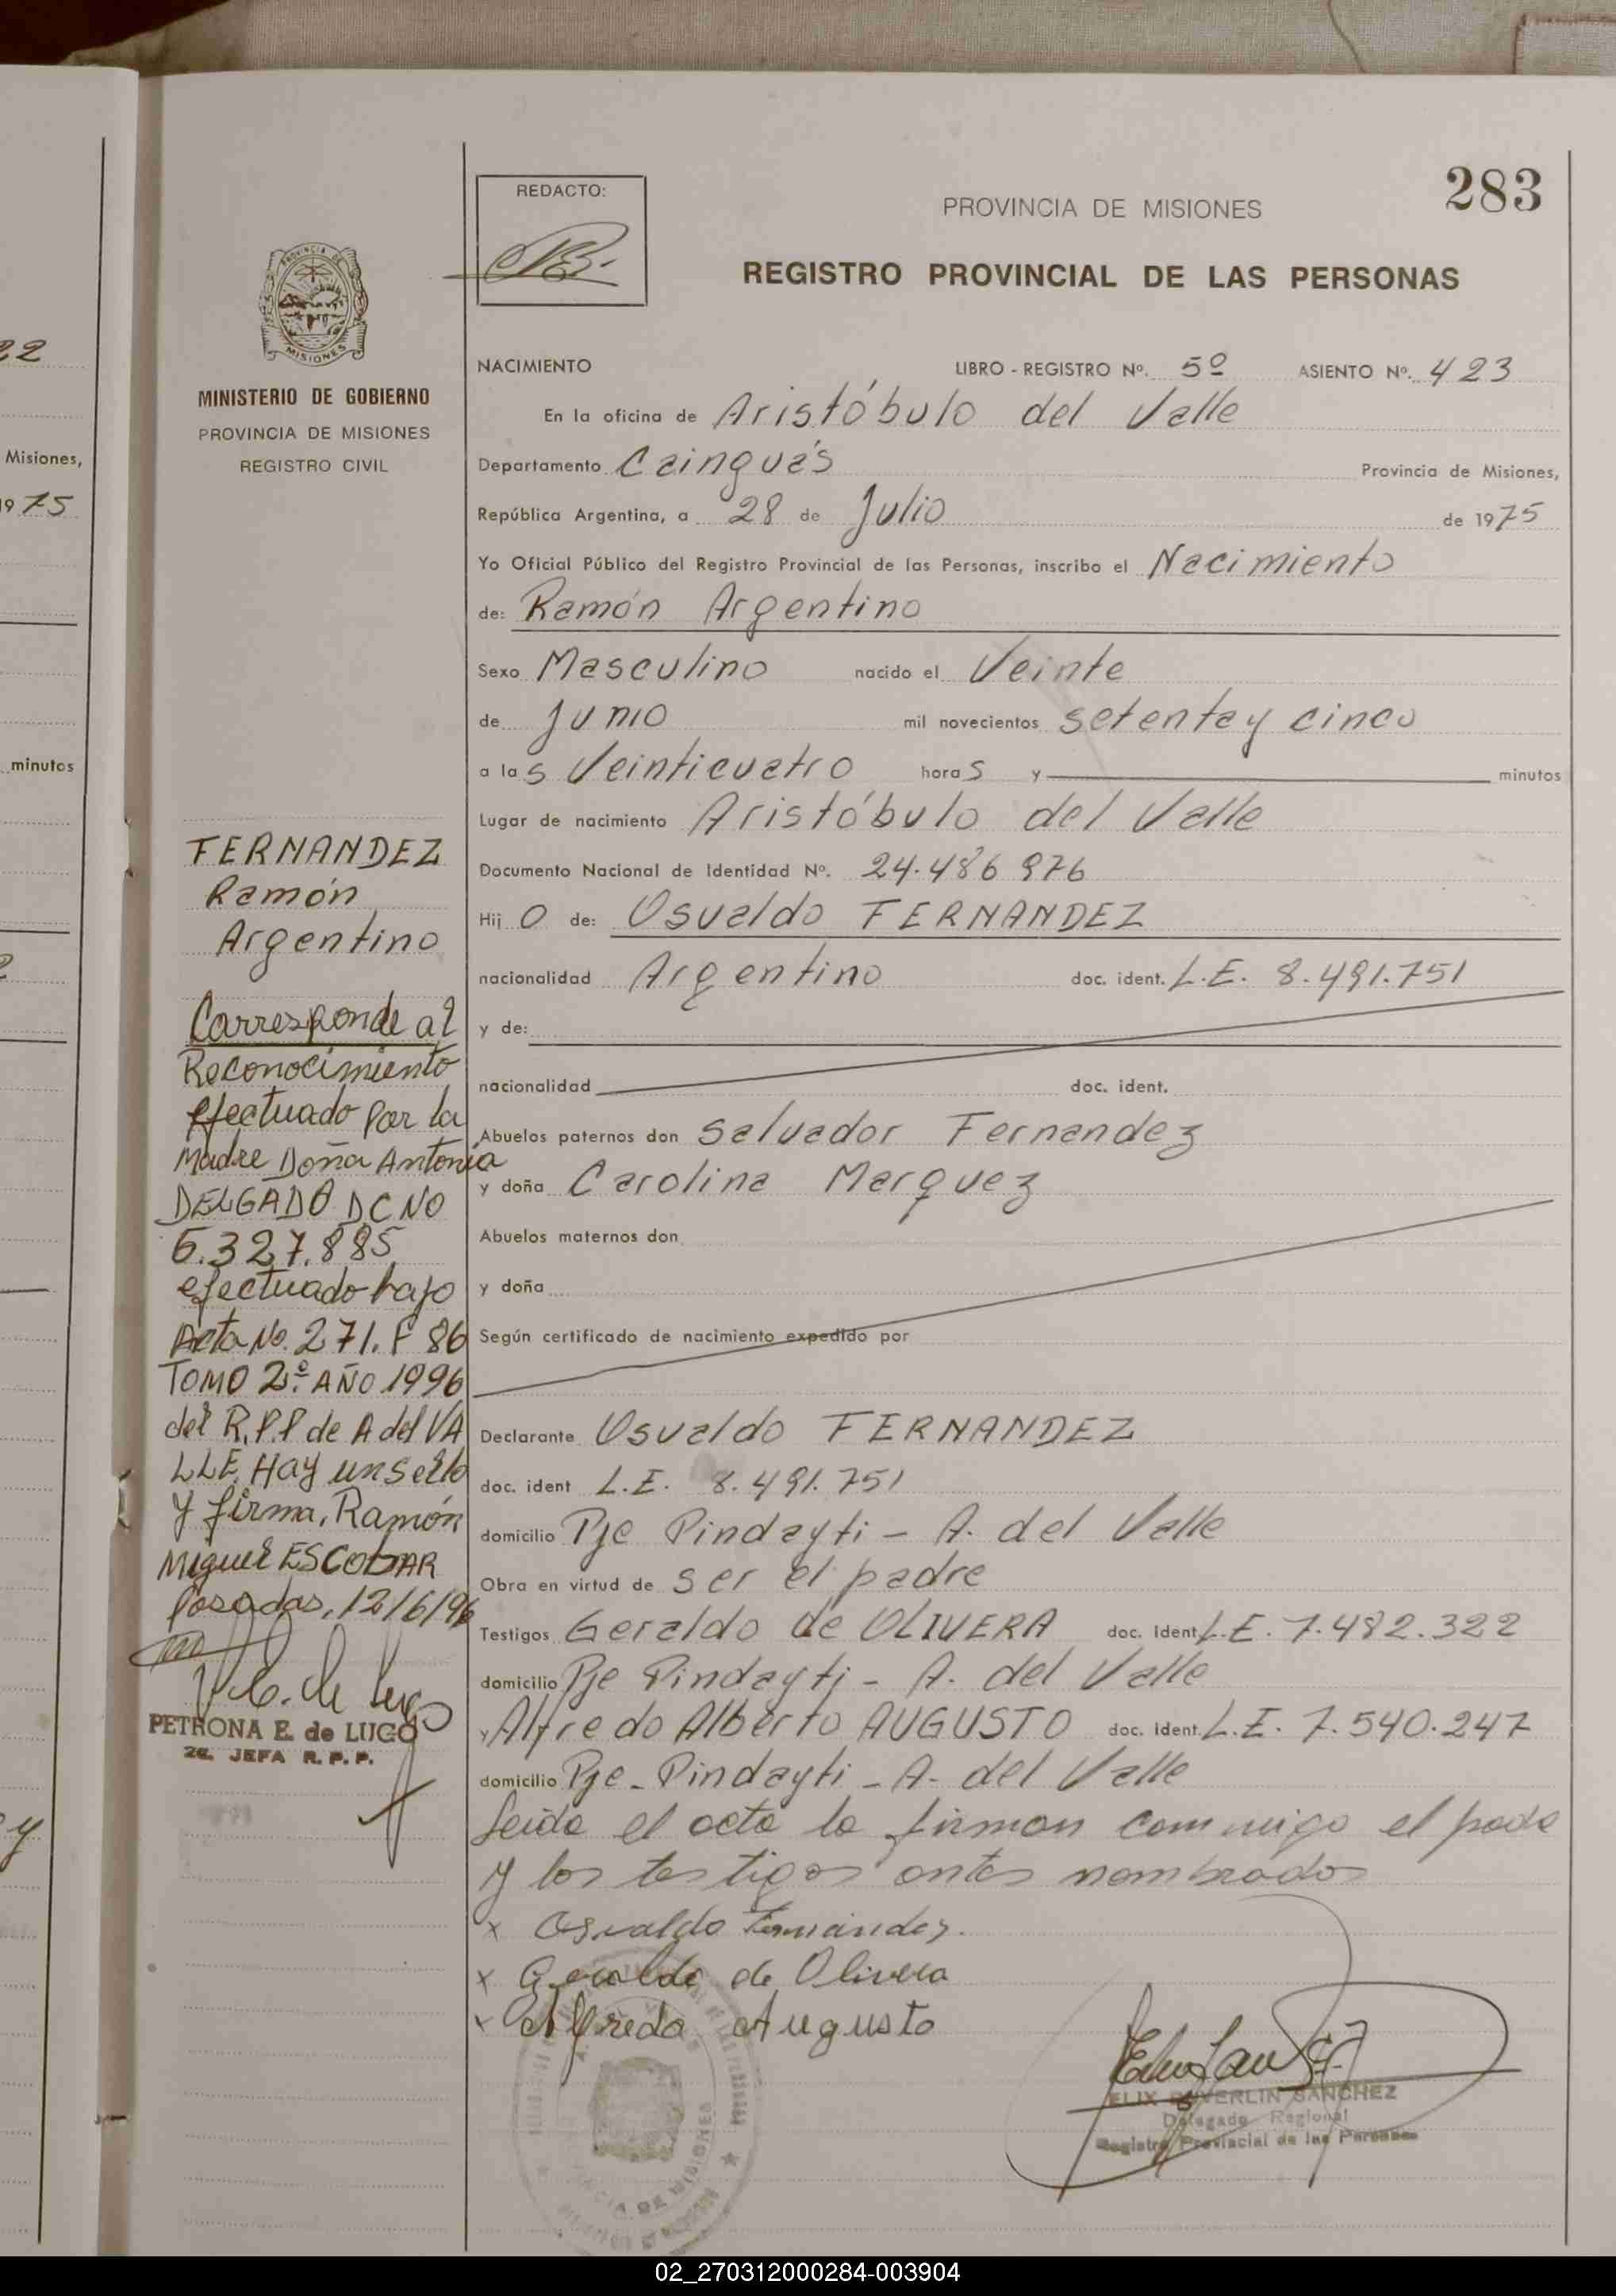 22
Misiones,
1975
minutos
y
PROVINCIA DE
MISIONES
MINISTERIO DE GOBIERNO
PROVINCIA DE MISIONES
REGISTRO CIVIL
FERNANDEZ
Ramón
Argentino
Corresponde al
Reconocimiento
efectuado por la
Madre Doña Antonia
DELGADO DC NO
6.327.885
efectuado bajo
Acta No. 271. F 86
TOMO 2º. AÑO 1996
del R.P.P de A del VA
LLE. Hay un sello
y firma, Ramón
Miguel ESCOBAR
Posadas, 12/6/96
PETRONA E. de LUGO
2a. JEFA R. P. P.
REDACTO:
283
PROVINCIA DE MISIONES
REGISTRO PROVINCIAL DE LAS PERSONAS
NACIMIENTO LIBRO - REGISTRO Nº. 5º ASIENTO Nº. 423
En la oficina de Aristóbulo del Valle
Departamento Cainguás Provincia de Misiones,
República Argentina, a 28 de Julio de 1975
Yo Oficial Público del Registro Provincial de las Personas, inscribo el Nacimiento
de: Ramón Argentino
Sexo Masculino nacido el Veinte
de Junio mil novecientos setenta y cinco
a las Veinticuatro horas y minutos
Lugar de nacimiento Aristóbulo del Valle
Documento Nacional de Identidad Nº. 24.486 976
Hijo de: Osvaldo FERNANDEZ
nacionalidad Argentino doc. ident. L.E. 8.491.751
y de:
nacionalidad doc. ident.
Abuelos paternos don Salvador Fernandez
y doña Carolina Marquez
Abuelos maternos don
y doña
Según certificado de nacimiento expedido por
Declarante Osvaldo FERNANDEZ
doc. ident L.E. 8.491.751
domicilio Pje Pindayti - A. del Valle
Obra en virtud de ser el padre
Testigos Geraldo de OLIVERA doc. ident L.E. 7.482.322
domicilio Pje Pindayti - A. del Valle
y Alfredo Alberto AUGUSTO doc. ident. L.E. 7.540.247
domicilio Pje - Pindayti - A- del Valle
Leida el acta la firman conmigo el padre
y los testigos antes nombrados
x Osvaldo Fernández.
x Geraldo de Olivera
x Alfredo Augusto
SANCHEZ
Delegado Regional
Registro Provincial de las Personas
DE MISIONES
02_270312000284-003904